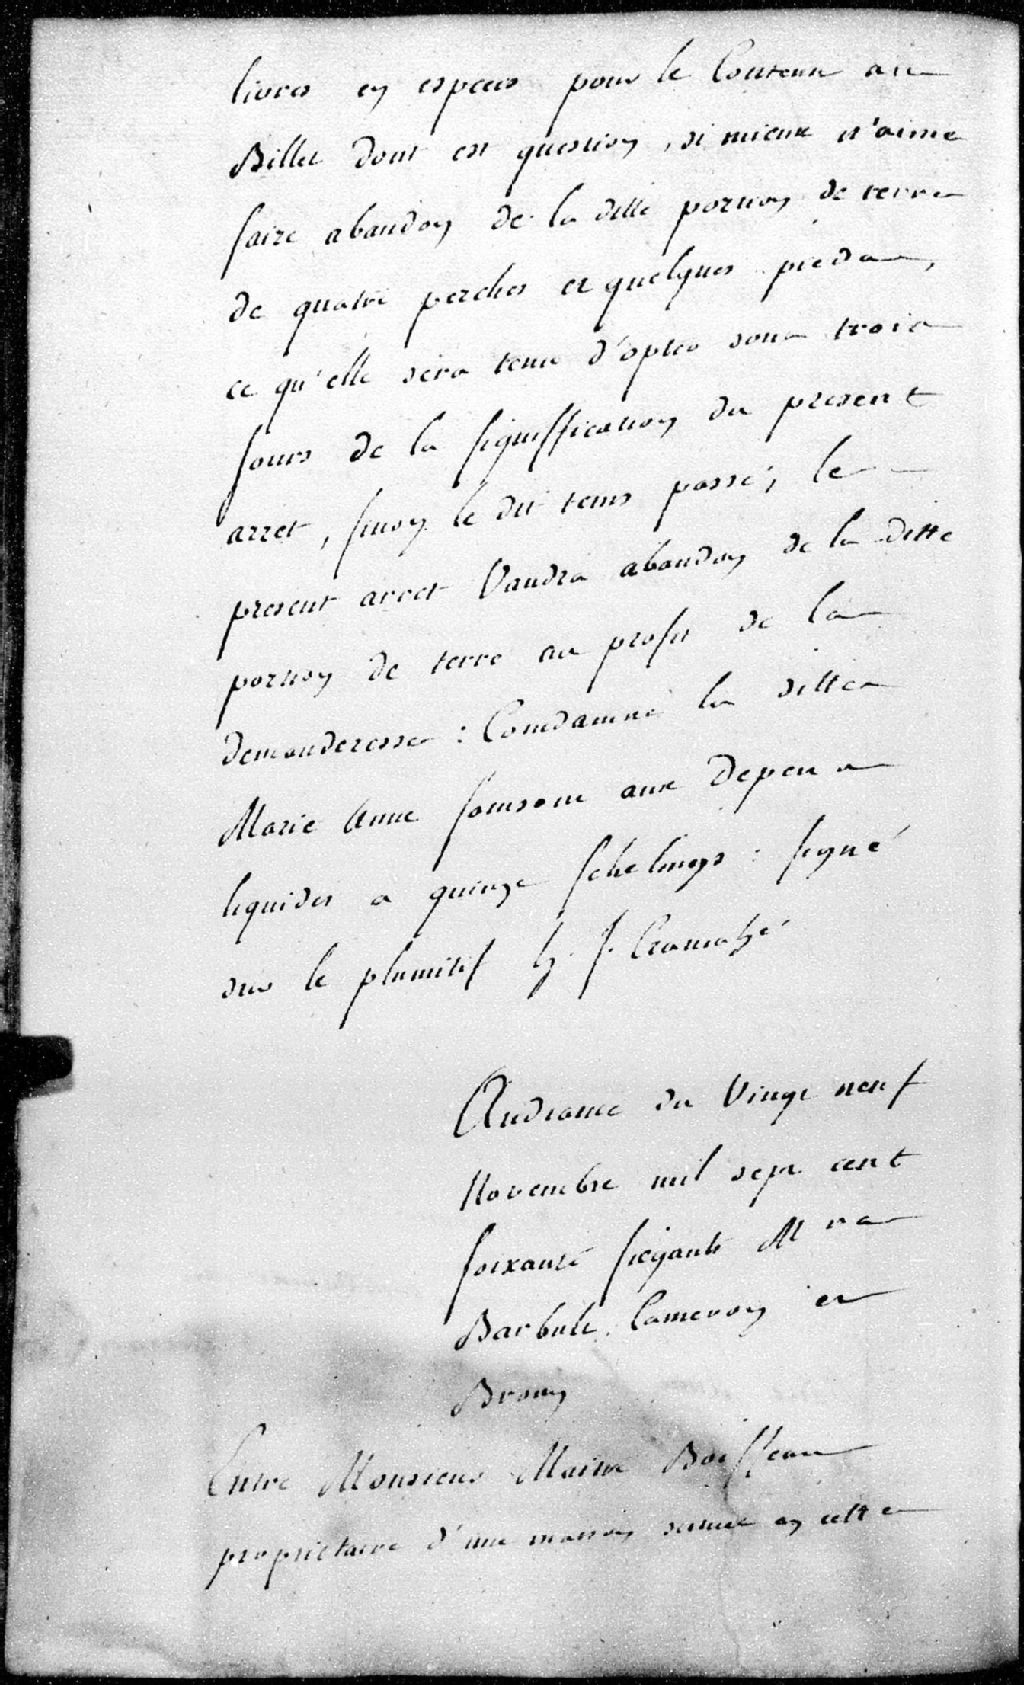 livres en especes pour le Contenu au
Billet dont est question, si mieux n'aime
faire abandon de la ditte portion de terre
de quatre perches et quelques pieds,
ce qu'elle sera tenu d'opter sous trois
jours de la signiffication du present
arret, sinon le dit tems passé, le
present arret Vaudra abandon de la ditte
portion de terre au profit de la
demanderesse : Condamne la ditte
Marie Anne aux Depens
liquides a quinze schelings : signé
sur le plumitif h. J. Cramahé
Audiance du Vingt neuf
Novembre mil sept cent
soixante siegants Mrs
Barbult. Cameron et
Brown
Entre Monsieur Maitre Boisseau
proprietaire d'une maison scituée en cette